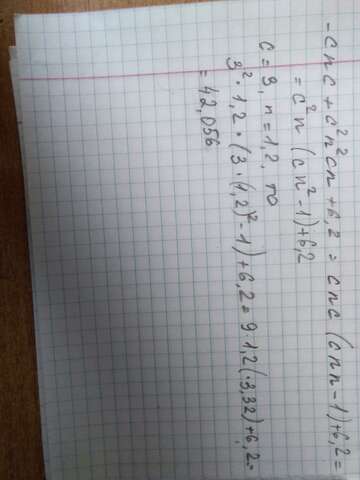 -cnc + c²n²cn + 6,2 = cnc (cnn-1)+6,2 =
= c²n (cn²-1)+6,2
c = 3, n = 1,2, то
3² · 1,2 · (3 · (1,2)² - 1) + 6,2 = 9·1,2(·3,32)+6,2 =
= 42,056